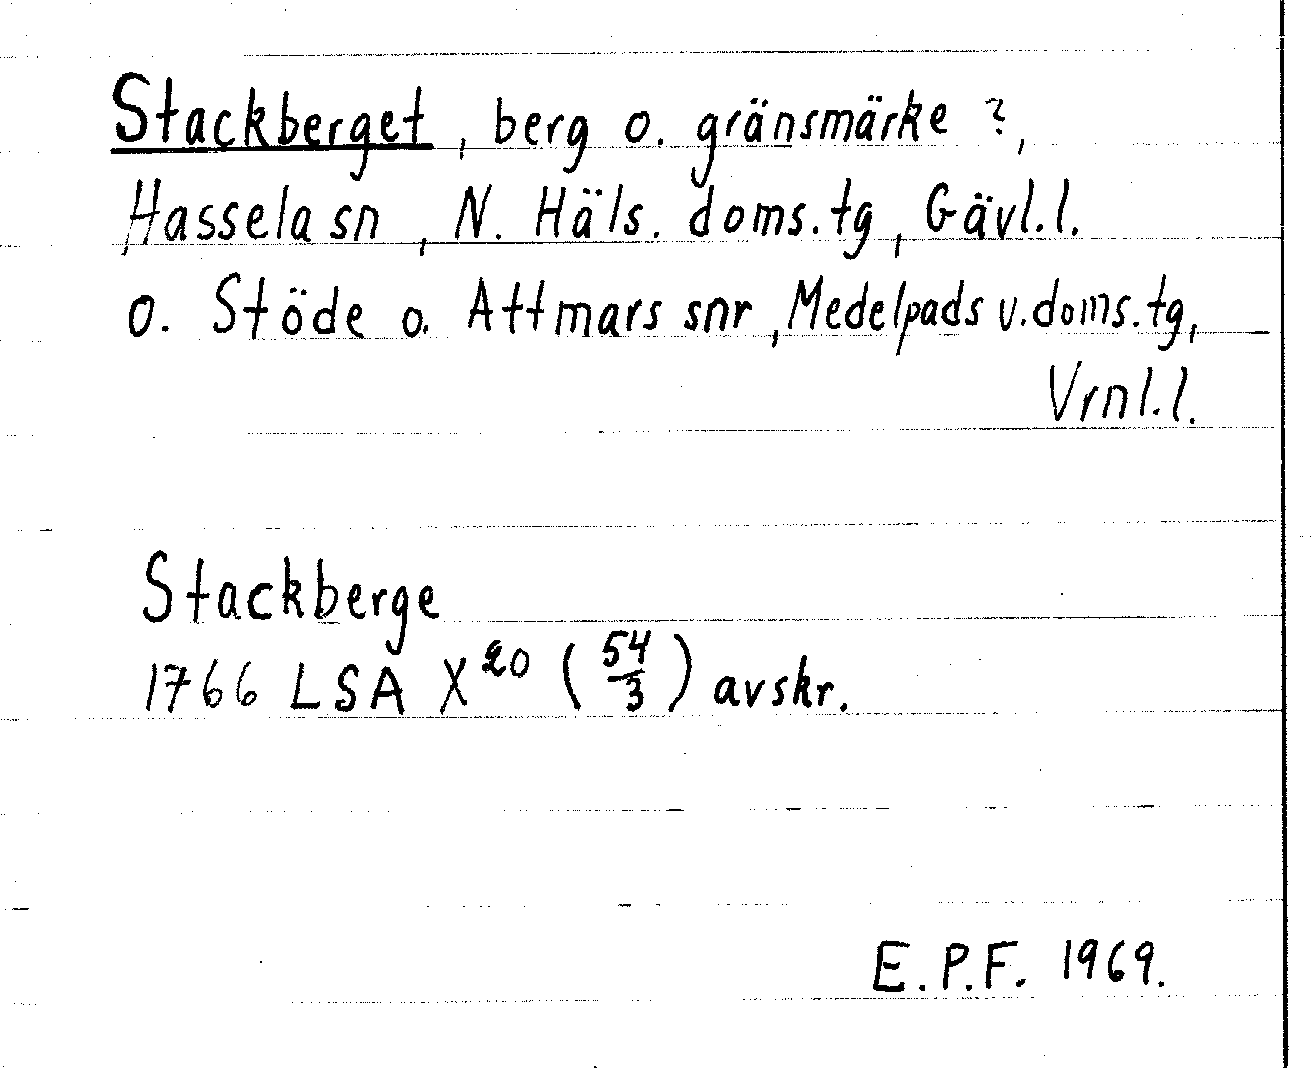 Stackberget, berg o. gränsmärke ?,
Hassela sn, N. Häls. doms.tg, Gävl.l.
o. Stöde o. Attmars snr, Medelpads v.doms.tg,
Vrnl.l.
Stackberge
1766 LSA X²⁰ (54/3) avskr.
E.P.F. 1969.